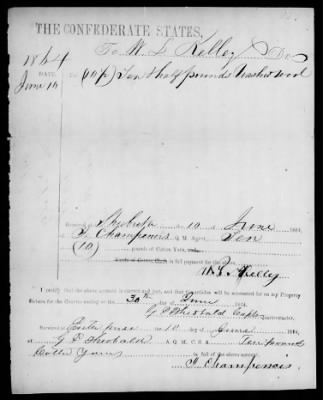 THE CONFEDERATE STATES,
To W L Kelley Dr
1864
DATE.
June 10 (10½) Ten & half pounds Washed wool
Received at this 10 June 1864,
of T. Champenois Q. M. Agent, Ten
(10) pounds of Cotton Yarn,
in full payment for the above.
W L Kelley
I certify that the above account is correct and just, and that the articles will be accounted for on my Property
Return for the Quarter ending the 30th day of June 1864.
G D Theobald Capt Quartermaster.
Received at Enterprise 10 June 1864,
of G D Theobald A. Q. M. C. S. A. Ten pounds
Cotton Yarns in full of the above account.
T Champenois